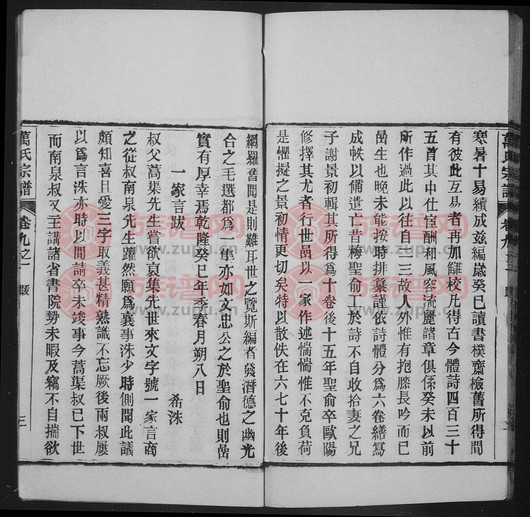 寒暑十易續成茲編歲癸巳讀書樸齋檢舊所得間
有彼此互易者再加讎校凡得古今體詩四百三十
五首其中仕宦酬和風容流麗諸章俱係癸未以前
所作過此以往自二三故人外惟有抱膝長吟而已
嵒生也晚未能按時排纂謹依詩體分爲六卷繕寫
成帙以備遺亡昔梅聖俞工於詩不自收拾妻之兄
子謝景初輯其所得爲十卷後十五年聖俞卒歐陽
修擇其尤者行世嵒以一家作述惴惴惟不克負荷
是懼擬之景初情更切矣特以散佚在六七十年後
網羅舊聞是則難耳世之覽斯編者發潛德之幽光
合之毛選都爲一集亦如文忠公之於聖俞也則嵒
實有厚幸焉乾隆癸巳年季春月朔八日
一家言跋
希洙
叔父萬渠先生嘗欲裒集先世來文字號一家言商
之從叔南泉先生躍然願爲襄事洙少時側聞此議
頗知喜且愛三字取義甚精熟識不忘厥後兩叔屢
以爲言洙亦時以間請卒未竣事今萬渠叔已下世
而南泉叔又主講諸省書院勢未暇及竊不自揣欲
萬氏宗譜
卷九之一
跋
三
萬氏宗譜
卷九
族譜网
www.zupu.cn